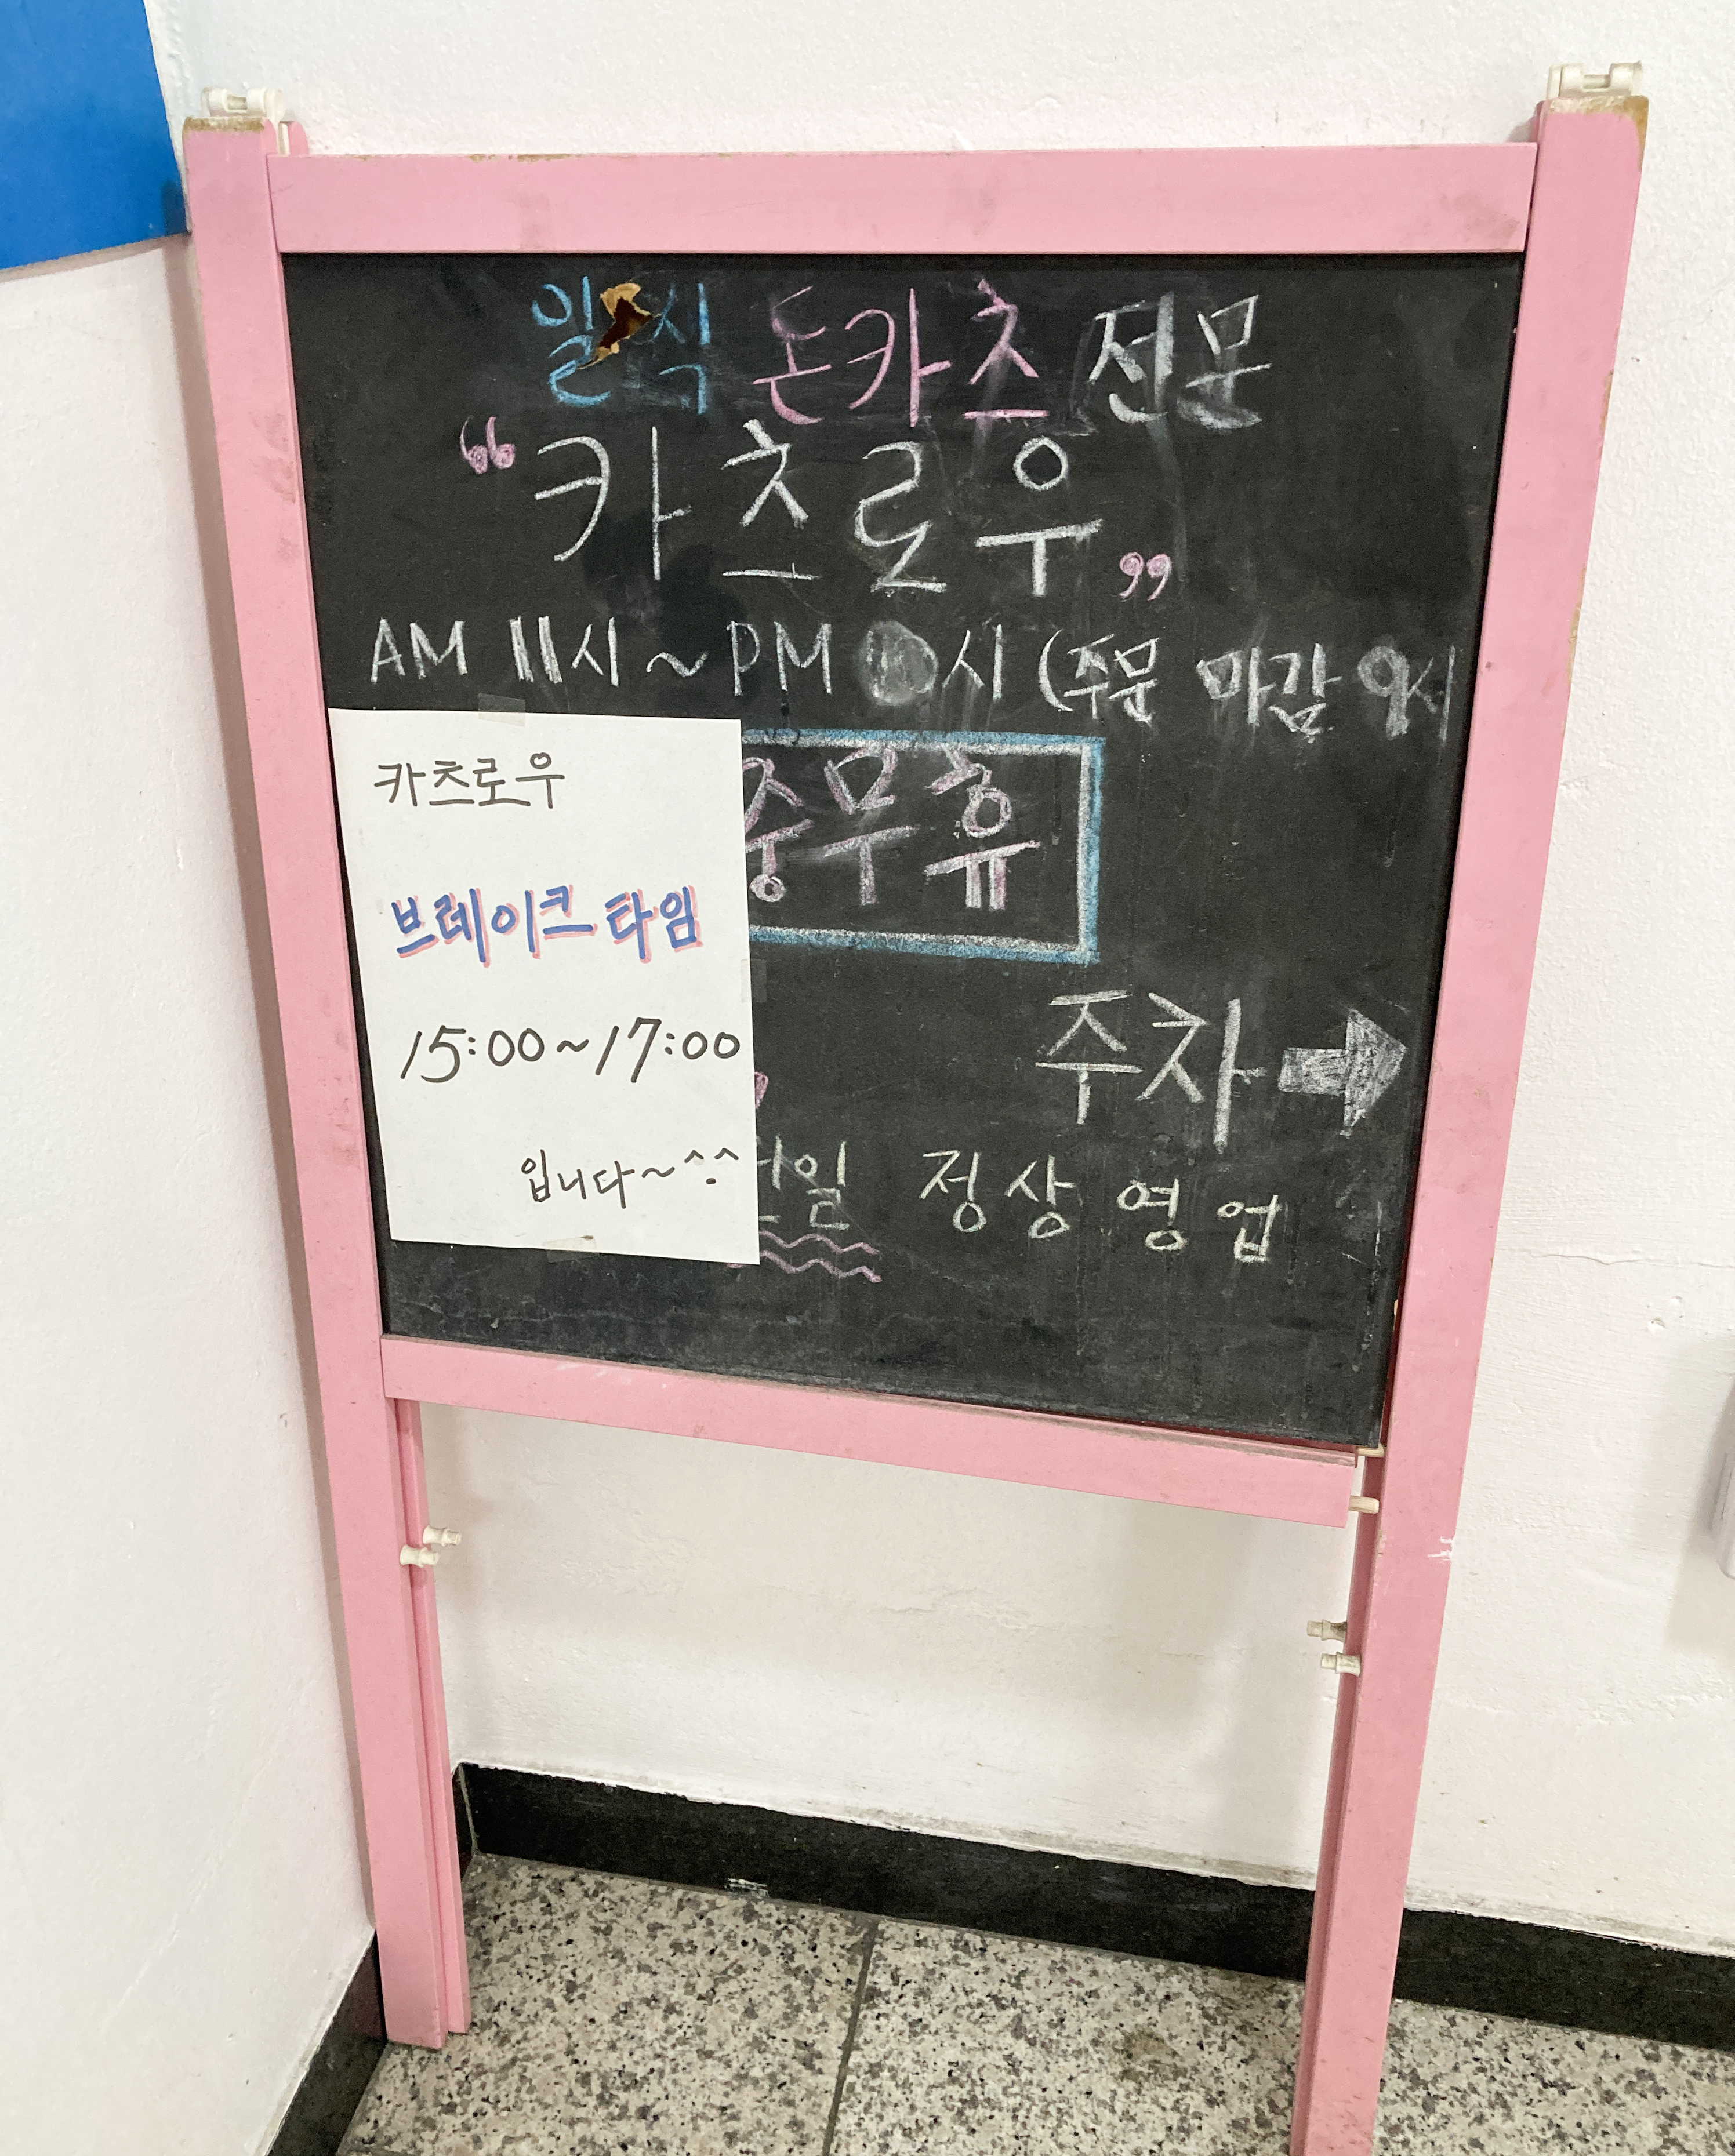 일식 돈카츠 전문
“카츠로우”
AM 11시~PM 시 (주문 마감 9시
중무휴
카츠로우
브레이크타임
15:00~17:00
입니다~^.^
주차 →
정상영업